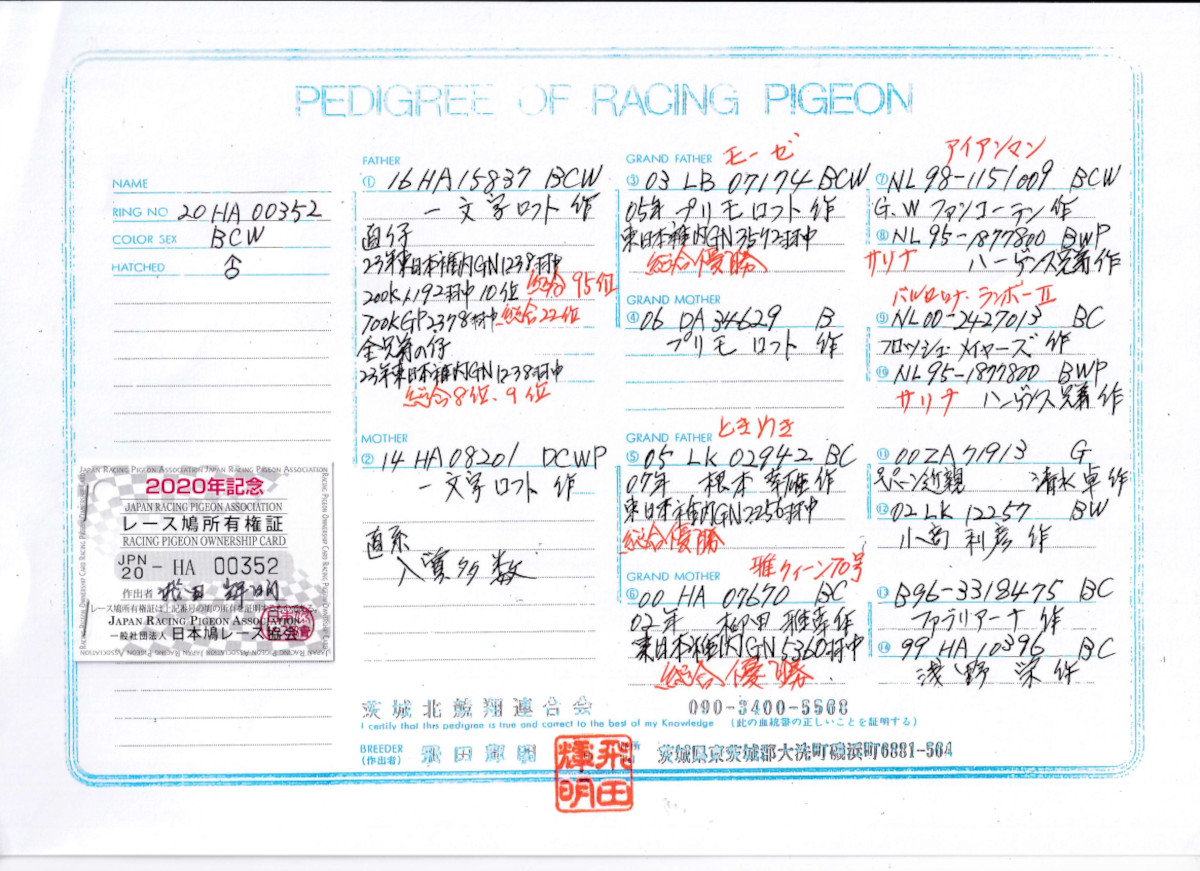 PEDIGREE OF RACING PIGEON
NAME
RING NO 20 HA 00352
COLOR SEX BCW
HATCHED ♂
FATHER
① 16 HA 15837 BCW
一文字ロフト 作
直仔
23年東日本稚内GN1238羽中
総合95位
200K 1,192羽中10位
700KGP2378羽中 総合22位
全兄弟の仔
23年東日本稚内GN1238羽中
総合8位、9位
MOTHER
② 14 HA 08201 DCWP
一文字ロフト 作
直系
入賞多数
GRAND FATHER モーゼ
③ 03 LB 07174 BCW
05年 プリモロフト 作
東日本稚内GN3572羽中
総合優勝
GRAND MOTHER
④ 06 DA 34629 B
プリモロフト 作
GRAND FATHER ときめき
⑤ 05 LK 02942 BC
07年 根本 幸雄 作
東日本稚内GN2256羽中
総合優勝
GRAND MOTHER 雅クイーン70号
⑥ 00 HA 07670 BC
02年 柳田 雅幸 作
東日本稚内GN5360羽中
総合優勝
アイアンマン
⑦ NL 98-1151009 BCW
G.W ファンコーテン 作
⑧ NL 95-1877800 BWP
サリナ ハーゲンス兄弟 作
バルセロナ・ランボーⅡ
⑨ NL00-2427013 BC
フロッシュ・メイヤーズ 作
⑩ NL95-1877800 BWP
サリナ ハーゲンス兄弟 作
⑪ 00ZA 71913 G
ペペーン近親 清水 卓 作
⑫ 02 LK 12257 BW
小高 利彦 作
⑬ B96-3318475 BC
ファブリアーナ 作
⑭ 99 HA 10396 BC
浅野 栄 作
JAPAN RACING PIGEON ASSOCIATION
2020年記念
JAPAN RACING PIGEON ASSOCIATION
レース鳩所有権証
RACING PIGEON OWNERSHIP CARD
JPN 20 - HA 00352
作出者 飛田 輝明
JAPAN RACING PIGEON ASSOCIATION
一般社団法人 日本鳩レース協会
茨城北競翔連合会 090-3400-5568
I certify that this pedigree is true and correct to the best of my Knowledge (此の血統書の正しいことを証明する)
BREEDER (作出者) 飛田輝明 茨城県東茨城郡大洗町磯浜町6881-564
飛田輝明